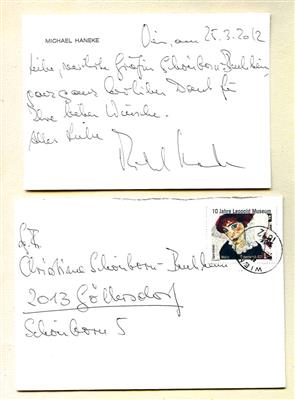 MICHAEL HANEKE
Wien, am 25.3.2012
Liebe, verehrte Gräfin Schönborn-Buchheim
ganz ganz herzlichen Dank für
Ihre lieben Wünsche.
Alles Liebe
10 Jahre Leopold Museum
Christiane Schönborn-Buchheim
2013 Göllersdorf
Schönborn 5
WIEN